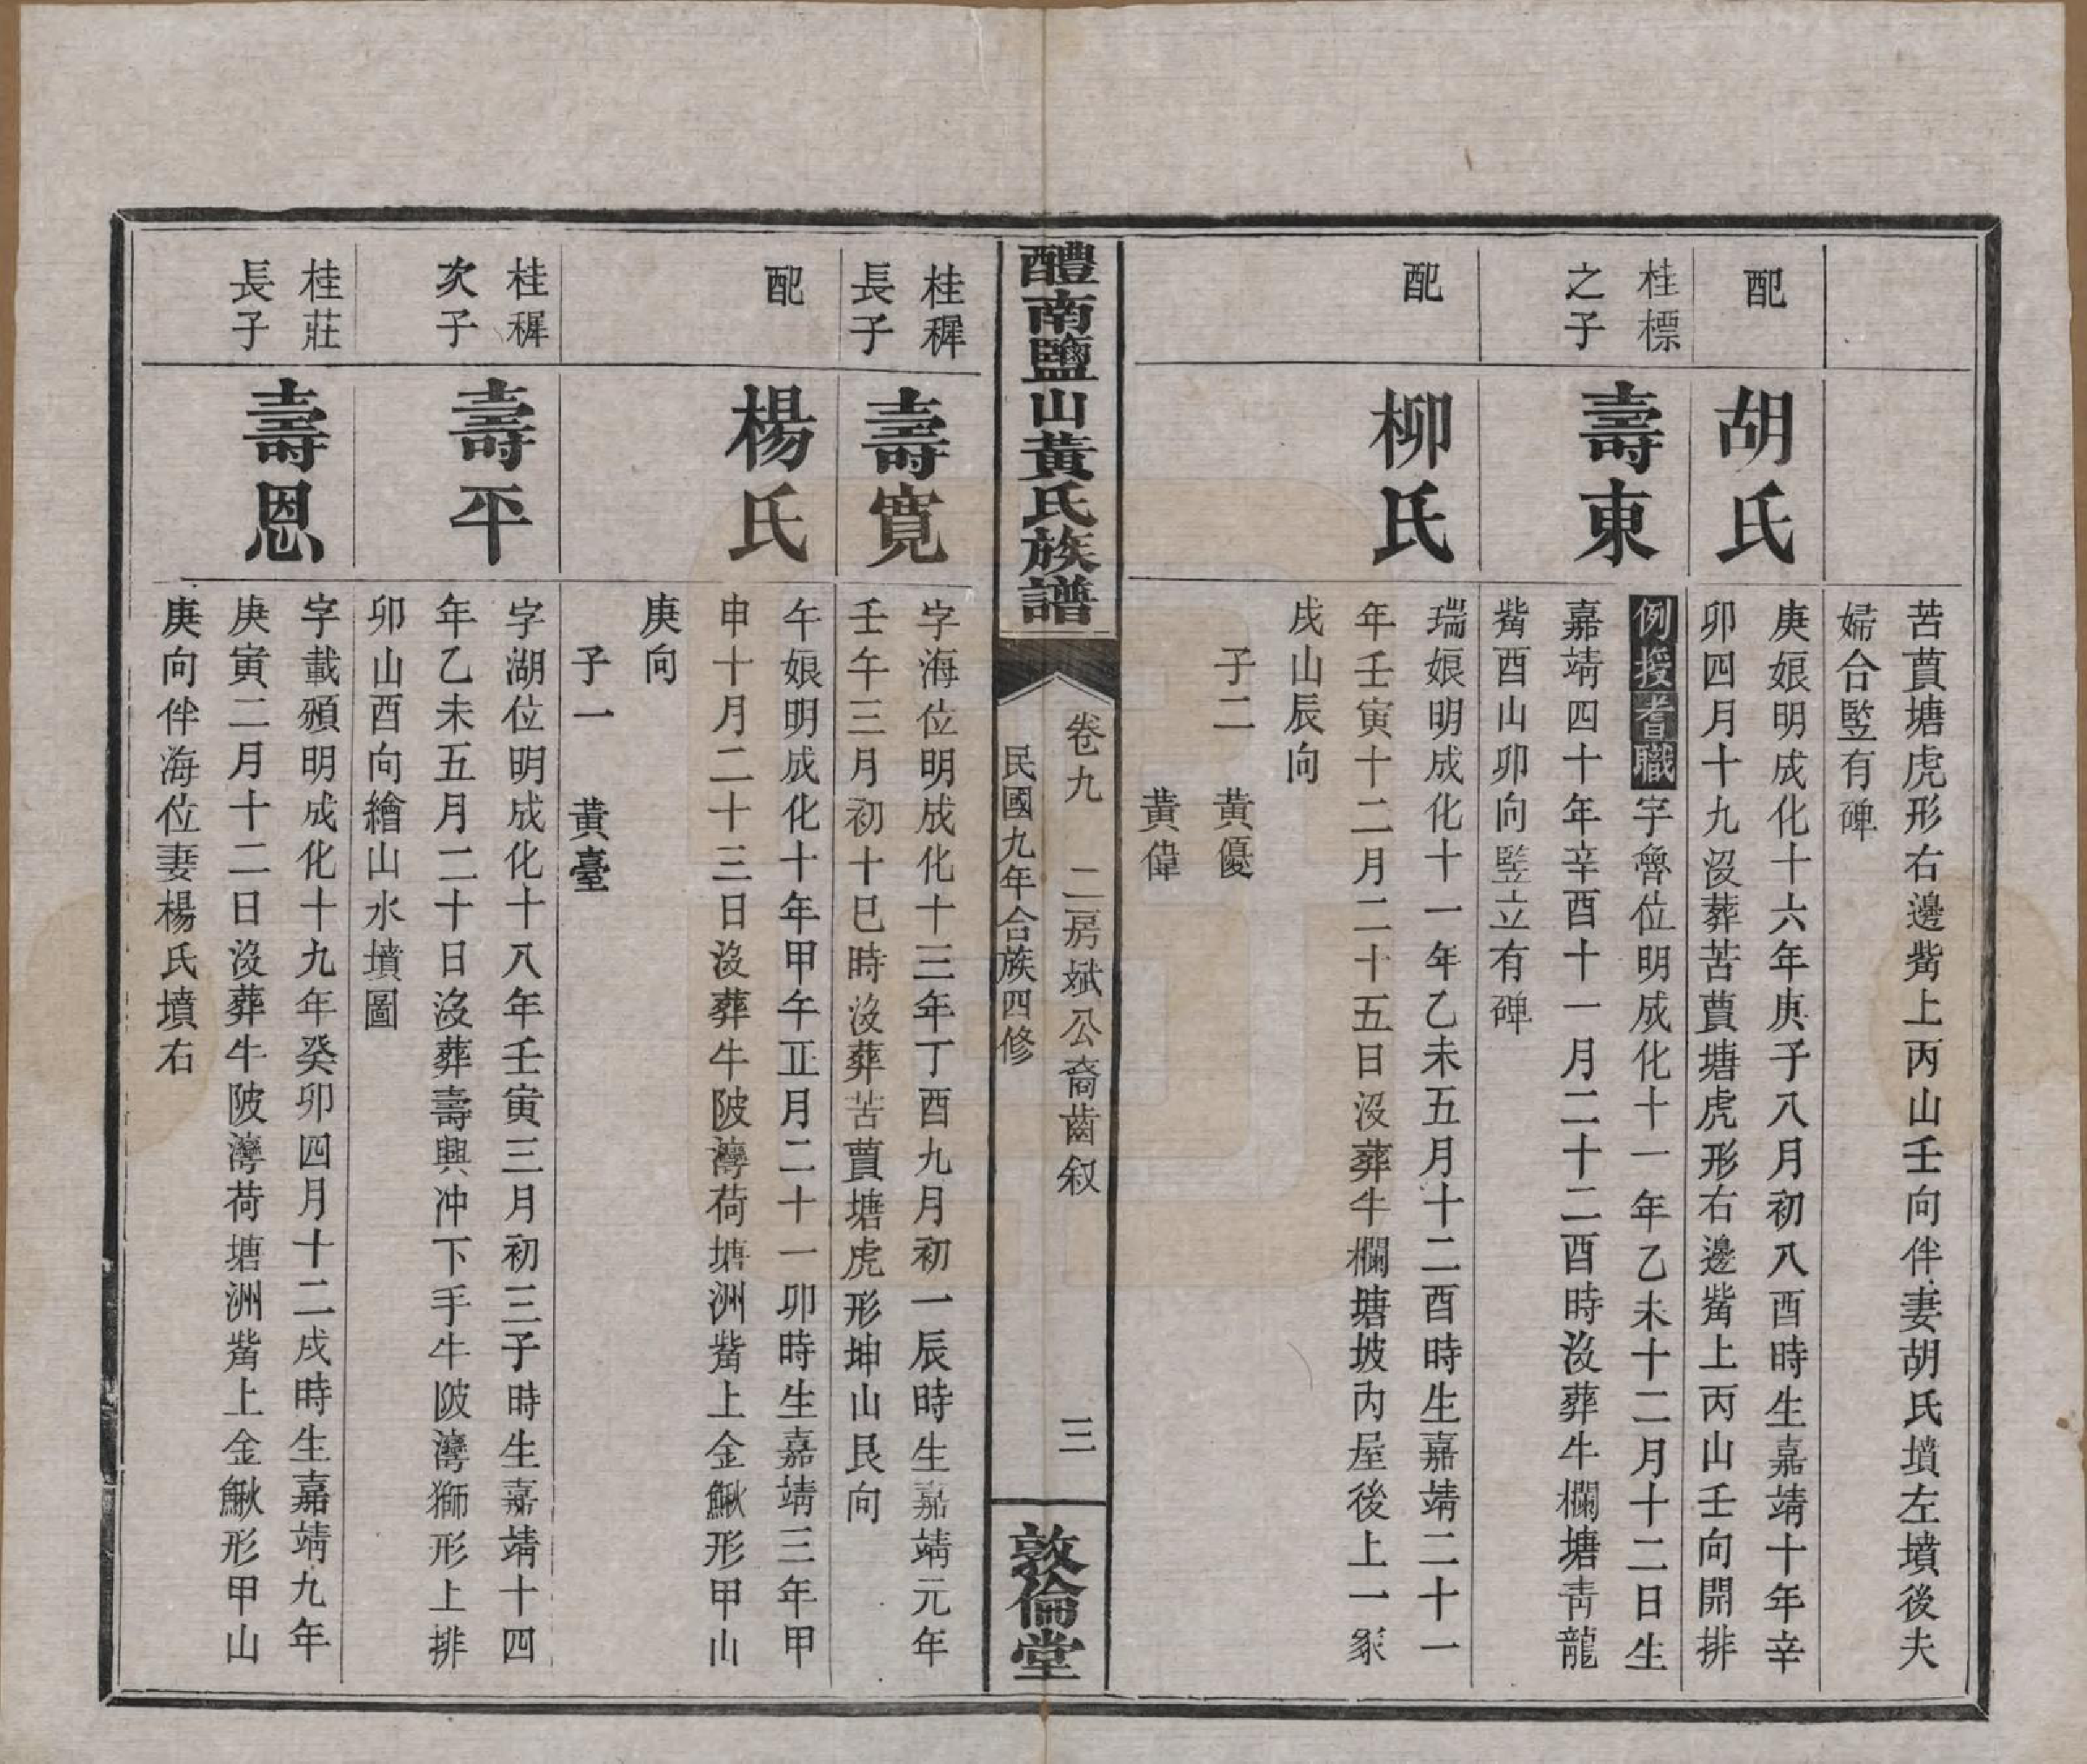 苦蕒塘虎形右邊觜上丙山壬向伴妻胡氏墳左墳後夫
婦合竪有碑
配
胡氏
庚娘明成化十六年庚子八月初八酉時生嘉靖十年辛
卯四月十九沒葬苦蕒塘虎形右邊觜上丙山壬向開排
桂標
之子
壽東
例授耆職字魯位明成化十一年乙未十二月十二日生
嘉靖四十年辛酉十一月二十二酉時沒葬牛欄塘靑龍
觜酉山卯向竪立有碑
配
柳氏
瑞娘明成化十一年乙未五月十二酉時生嘉靖二十一
年壬寅十二月二十五日沒葬牛欄塘坡內屋後上一冢
戌山辰向
子二 黃優
黃偉
醴南鹽山黃氏族譜
卷九 二房斌公裔齒敘 三
民國九年合族四修
敦倫堂
桂穉
長子
壽寬
字海位明成化十三年丁酉九月初一辰時生嘉靖元年
壬午三月初十巳時沒葬苦蕒塘虎形坤山艮向
配
楊氏
午娘明成化十年甲午正月二十一卯時生嘉靖三年甲
申十月二十三日沒葬牛陂灣荷塘洲觜上金鰍形甲山
庚向
子一 黃臺
桂穉
次子
壽平
字湖位明成化十八年壬寅三月初三子時生嘉靖十四
年乙未五月二十日沒葬壽興冲下手牛陂灣獅形上排
卯山酉向繪山水墳圖
桂莊
長子
壽恩
字載頒明成化十九年癸卯四月十二戌時生嘉靖九年
庚寅二月十二日沒葬牛陂灣荷塘洲觜上金鰍形甲山
庚向伴海位妻楊氏墳右